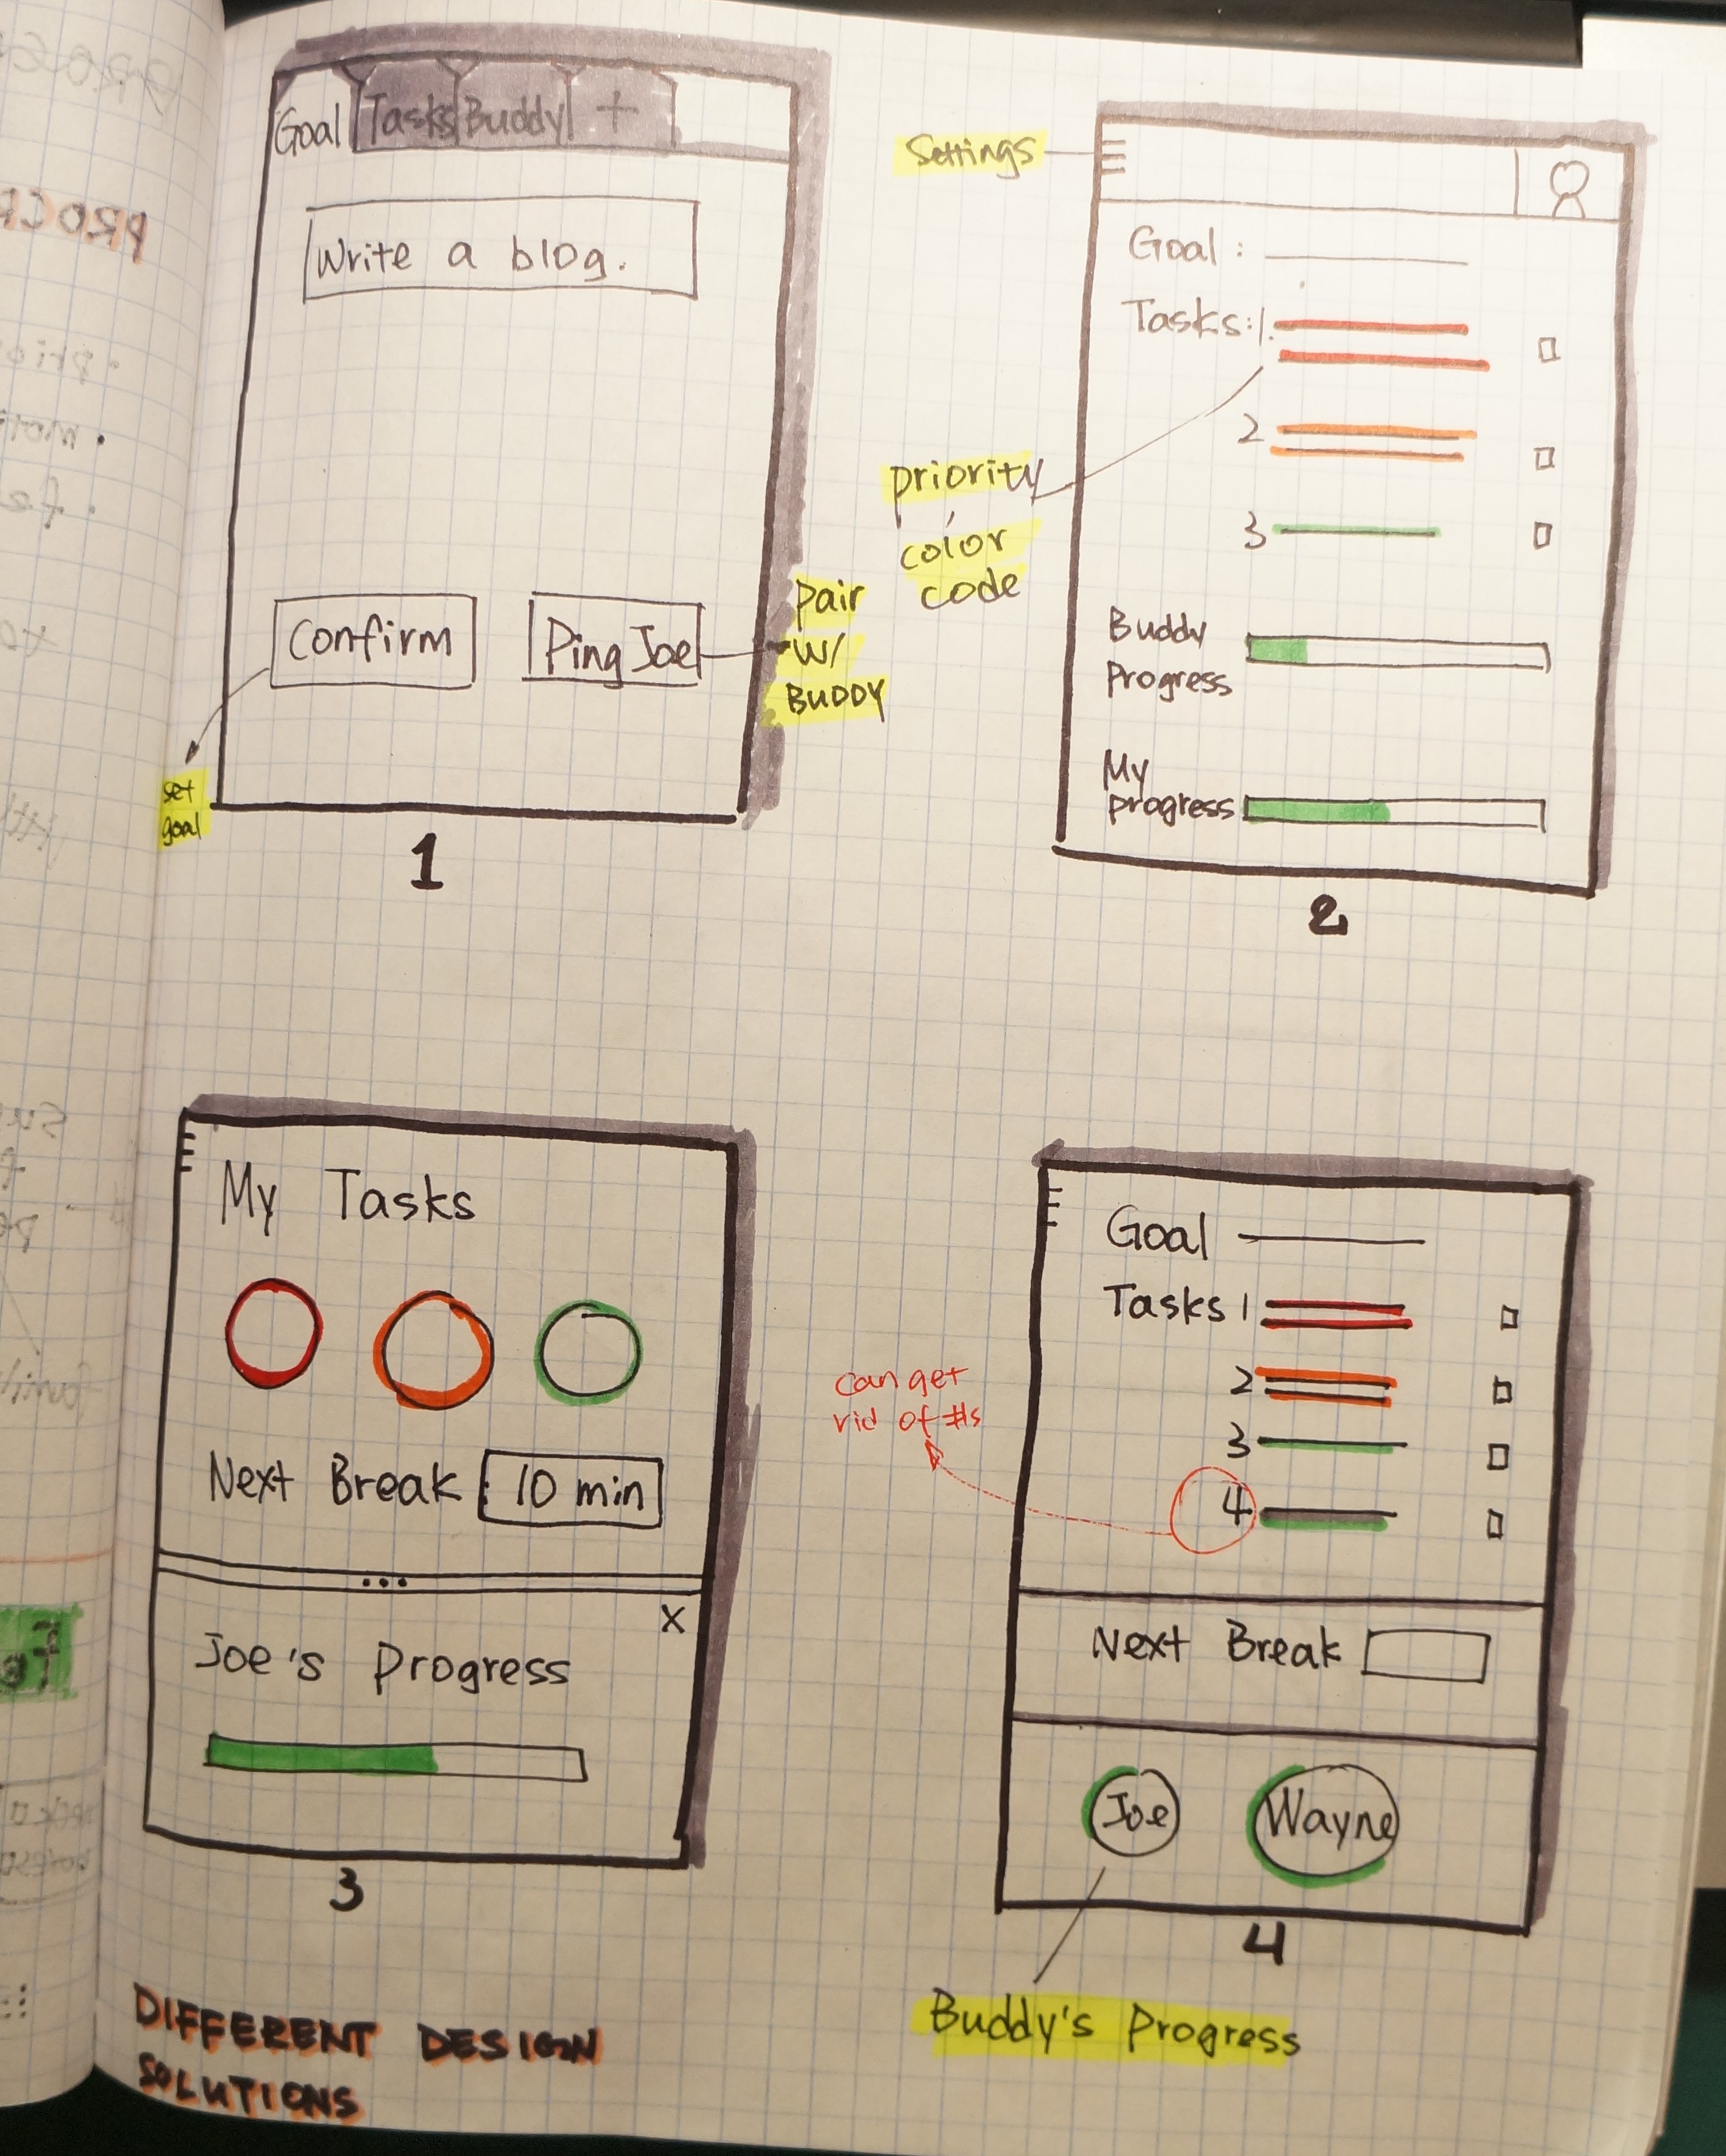 Goal Tasks Buddy +
Write a blog.
Confirm
Ping Joe
pair
w/
BUDDY
set
goal
1
Settings
Goal :
Tasks: 1.
2
3
priority
color
code
Buddy
Progress
My
progress
2
My Tasks
Next Break : 10 min
X
Joe's Progress
3
Goal
Tasks 1
2
3
4
can get
rid of #s
Next Break
Joe
Wayne
4
Buddy's Progress
DIFFERENT DESIGN
SOLUTIONS